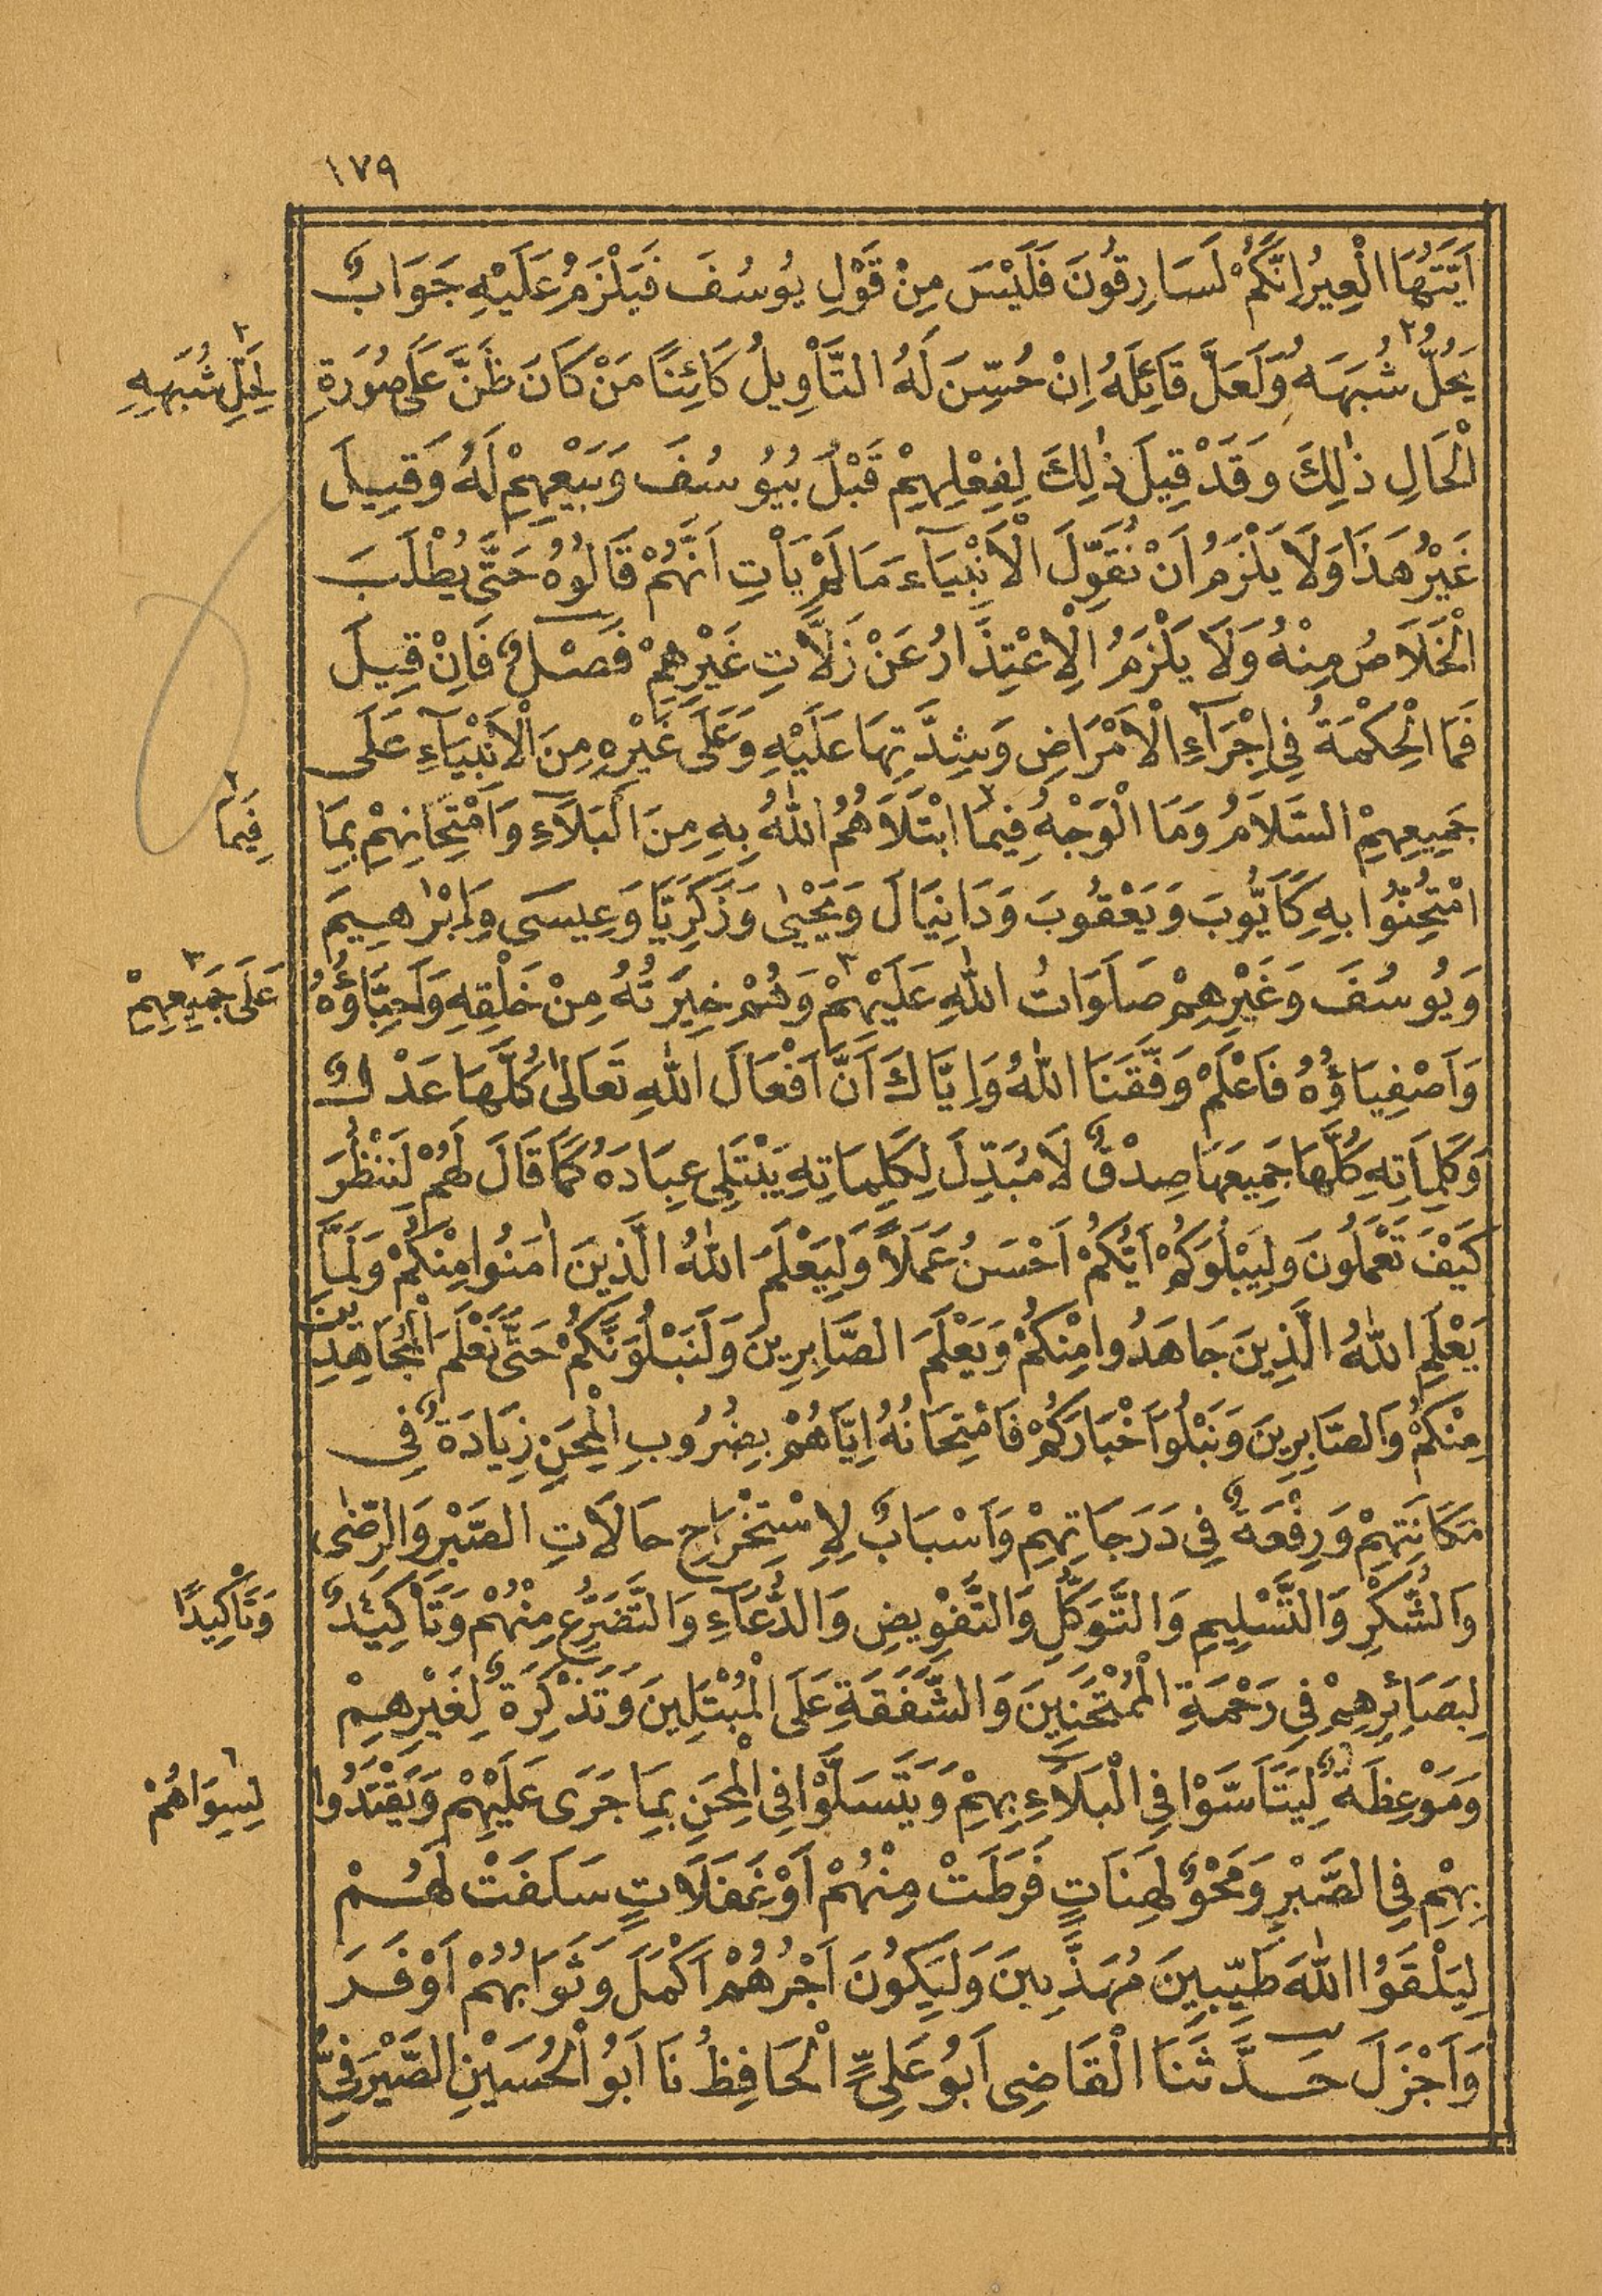 ١٧٩
اَيَّتُهَا الْعِيرُ اِنَّكُمْ لَسَارِقُونَ فَلَيْسَ مِنْ قَوْلِ يُوسُفَ فَيَلْزَمُ عَلَيْهِ جَوَابٌ
يَحُلُّ شُبَهَهُ وَلَعَلَّ قَائِلَهُ اِنْ حُسِّنَ لَهُ التَّأْوِيلُ كَائِنًا مَنْ كَانَ ظَنَّ عَلَى صُورَةِ
لِحَلِّ شُبَهِهِ
الْحَالِ ذٰلِكَ وَقَدْ قِيلَ ذٰلِكَ لِفِعْلِهِمْ قَبْلُ بِيُوسُفَ وَبَيْعِهِمْ لَهُ وَقِيلَ
غَيْرُ هَذَا وَلَا يَلْزَمُ اَنْ نُقَوِّلَ الْاَنْبِيَآءَ مَا لَمْ يَأْتِ اَنَّهُمْ قَالُوهُ حَتَّى يُطْلَبَ
الْخَلَاصُ مِنْهُ وَلَا يَلْزَمُ الْاِعْتِذَارُ عَنْ زَلَّاتِ غَيْرِهِمْ فَصْلٌ فَاِنْ قِيلَ
فَمَا الْحِكْمَةُ فِي اِجْرَآءِ الْاَمْرَاضِ وَشِدَّتِهَا عَلَيْهِ وَعَلَى غَيْرِهِ مِنَ الْاَنْبِيَآءِ عَلَى
جَمِيعِهِمُ السَّلَامُ وَمَا الْوَجْهُ فِيمَا ابْتَلَاهُمُ اللهُ بِهِ مِنَ الْبَلَآءِ وَامْتِحَانِهِمْ بِمَا
فِيَما
امْتُحِنُوا بِهِ كَاَيُّوبَ وَيَعْقُوبَ وَدَانِيَالَ وَيَحْيٰى وَزَكَرِيَّا وَعِيسَى وَاِبْرٰهِيمَ
وَيُوسُفَ وَغَيْرِهِمْ صَلَوَاتُ اللهِ عَلَيْهِمْ وَهُمْ خِيَرَتُهُ مِنْ خَلْقِهِ وَاَحِبَّاؤُهُ
عَلَى جَمِيعِهِمْ
وَاَصْفِيَاؤُهُ فَاعْلَمْ وَفَّقَنَا اللهُ وَاِيَّاكَ اَنَّ اَفْعَالَ اللهِ تَعَالٰى كُلَّهَا عَدْلٌ
وَكَلِمَاتِهِ كُلَّهَا جَمِيعَهَا صِدْقٌ لَا مُبَدِّلَ لِكَلِمَاتِهِ يَبْتَلِي عِبَادَهُ كَمَا قَالَ لَهُمْ لِنَنْظُرَ
كَيْفَ تَعْمَلُونَ وَلِيَبْلُوَكُمْ اَيُّكُمْ اَحْسَنُ عَمَلًا وَلِيَعْلَمَ اللهُ الَّذِينَ اٰمَنُوا مِنْكُمْ وَلَمَّا
يَعْلَمِ اللهُ الَّذِينَ جَاهَدُوا مِنْكُمْ وَيَعْلَمَ الصَّابِرِينَ وَلَنَبْلُوَنَّكُمْ حَتَّى نَعْلَمَ الْمُجَاهِدِينَ
مِنْكُمْ وَالصَّابِرِينَ وَنَبْلُوَ اَخْبَارَكُمْ فَامْتِحَانُهُ اِيَّاهُمْ بِضُرُوبِ الْمِحَنِ زِيَادَةٌ فِي
مَكَانَتِهِمْ وَرِفْعَةٌ فِي دَرَجَاتِهِمْ وَاَسْبَابٌ لِاِسْتِخْرَاجِ حَالَاتِ الصَّبْرِ وَالرِّضٰى
وَالشُّكْرِ وَالتَّسْلِيمِ وَالتَّوَكُّلِ وَالتَّفْوِيضِ وَالدُّعَآءِ وَالتَّضَرُّعِ مِنْهُمْ وَتَأْكِيدٌ
وَتَأْكِيدًا
لِبَصَائِرِهِمْ فِي رَحْمَةِ الْمُمْتَحَنِينَ وَالشَّفَقَةِ عَلَى الْمُبْتَلِينَ وَتَذْكِرَةٌ لِغَيْرِهِمْ
وَمَوْعِظَةٌ لِيَتَأَسَّوْا فِي الْبَلَآءِ بِهِمْ وَيَتَسَلَّوْا فِي الْمِحَنِ بِمَا جَرَى عَلَيْهِمْ وَيَقْتَدُوا
لِسِوَاهُمْ
بِهِمْ فِي الصَّبْرِ وَمَحْوٌ لِهَنَاتٍ فَرَطَتْ مِنْهُمْ اَوْ غَفَلَاتٍ سَلَفَتْ لَهُمْ
لِيَلْقَوُا اللهَ طَيِّبِينَ مُهَذَّبِينَ وَلِيَكُونَ اَجْرُهُمْ اَكْمَلَ وَثَوَابُهُمْ اَوْفَرَ
وَاَجْزَلَ حَدَّثَنَا الْقَاضِى اَبُو عَلِىٍّ الْحَافِظُ نَا اَبُو الْحُسَيْنِ الصَّيْرَفِىُّ